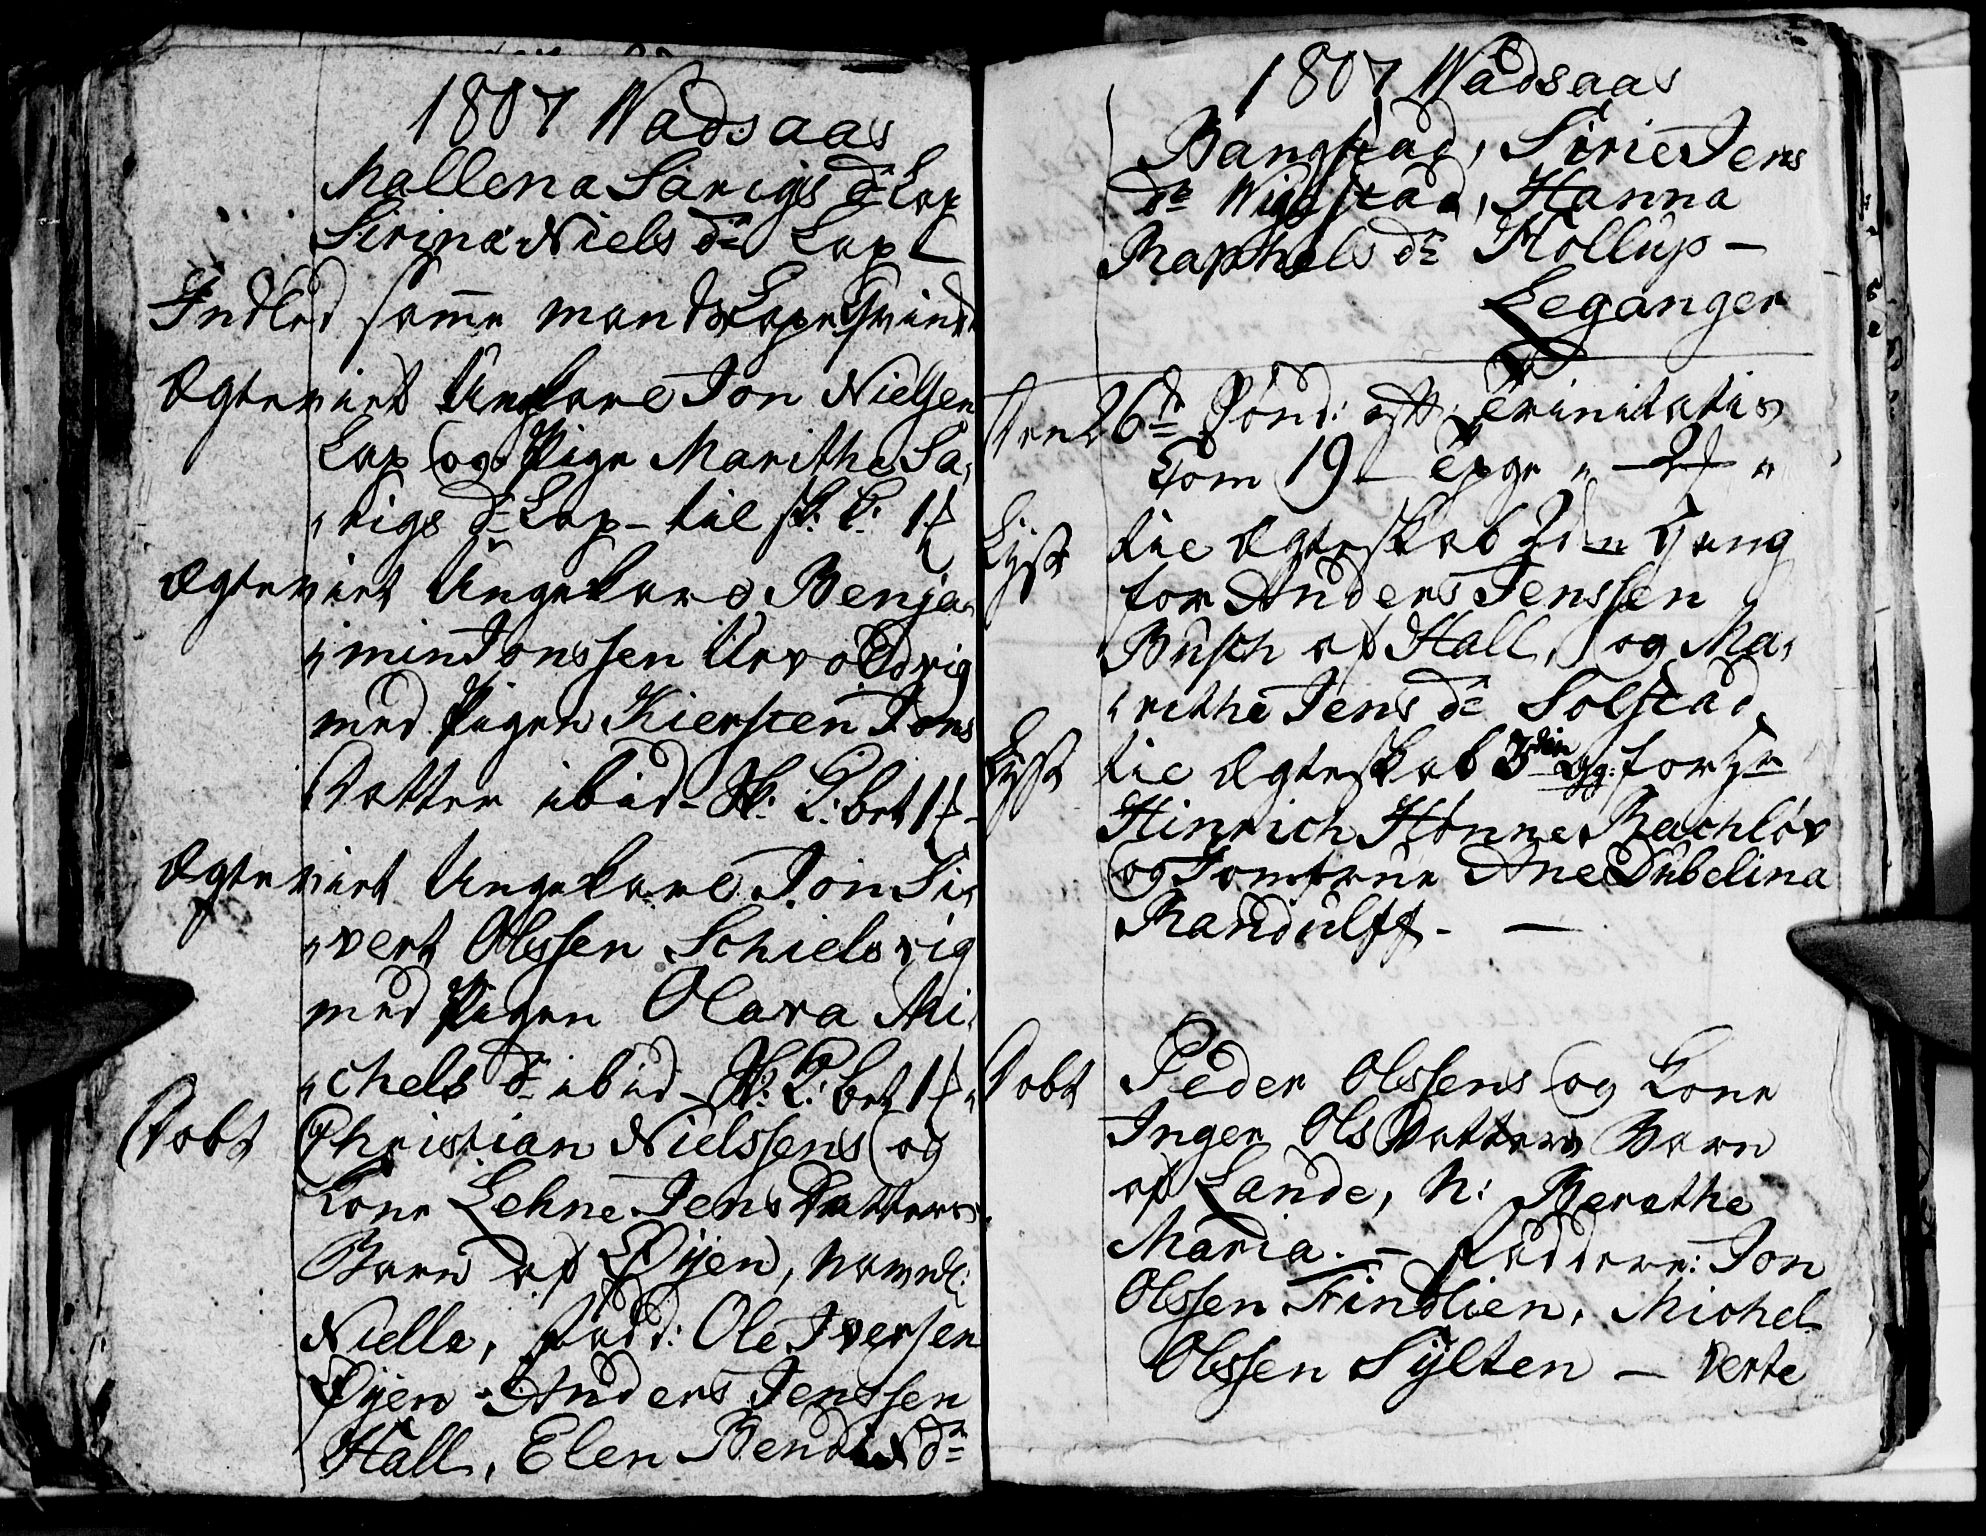 1807 Wadsaas
Mallena Sarigs dr Lap
Sirina Niels dr Lap
Indled samme mands Lape Qvinde
Ægteviet Ungkarl Jon Nielsen
Lap og Pige Marithe Sa„
„rigs dr Lap – til sk: L:
Ægteviet Ungekarl Benja„
„min Jonssen Urvoldvig
med Pigen Kiersten Jons
Datter ibid – Sk: L: bet
Ægteviet Ungekarl Jon Si„
„vert Olssen Schielsvig
med Pigen Olava Mi„
„chels dr ibid – Sk: L: bet
Døbt Christian Nielssens og
Kone Lehne Jens Datters
Barn af Øyen, Navnl:
Niella, Fadd: Ole Iversen
Øyen – Anders Jenssen
Hall, Elen Bendts dr
1807 Wadsaas
Bangstad, Sirie Jens
dr Wigestad, Hanna
Raphels dr Hollup –
Leganger
Den 26de Sønd: eft: Trinitatis
Kom 19
Lyst til Ægteskab 2den Gang
for Anders Jenssen
Busch af Hall, og Ma„
„rithe Jens dr Solstad
Lyst til Ægteskab 3die gg: for Hr
Hinrich Hønne Rachløv
og Jomfrue Ane Dubelina
Randulff. –
Døbt Peder Olssens og Kone
Inger Ols Datters Barn
af Lande, N: Berethe
Maria. – Faddere: Jon
Olssen Findlien, Michel
Olssen Sylten – Verte